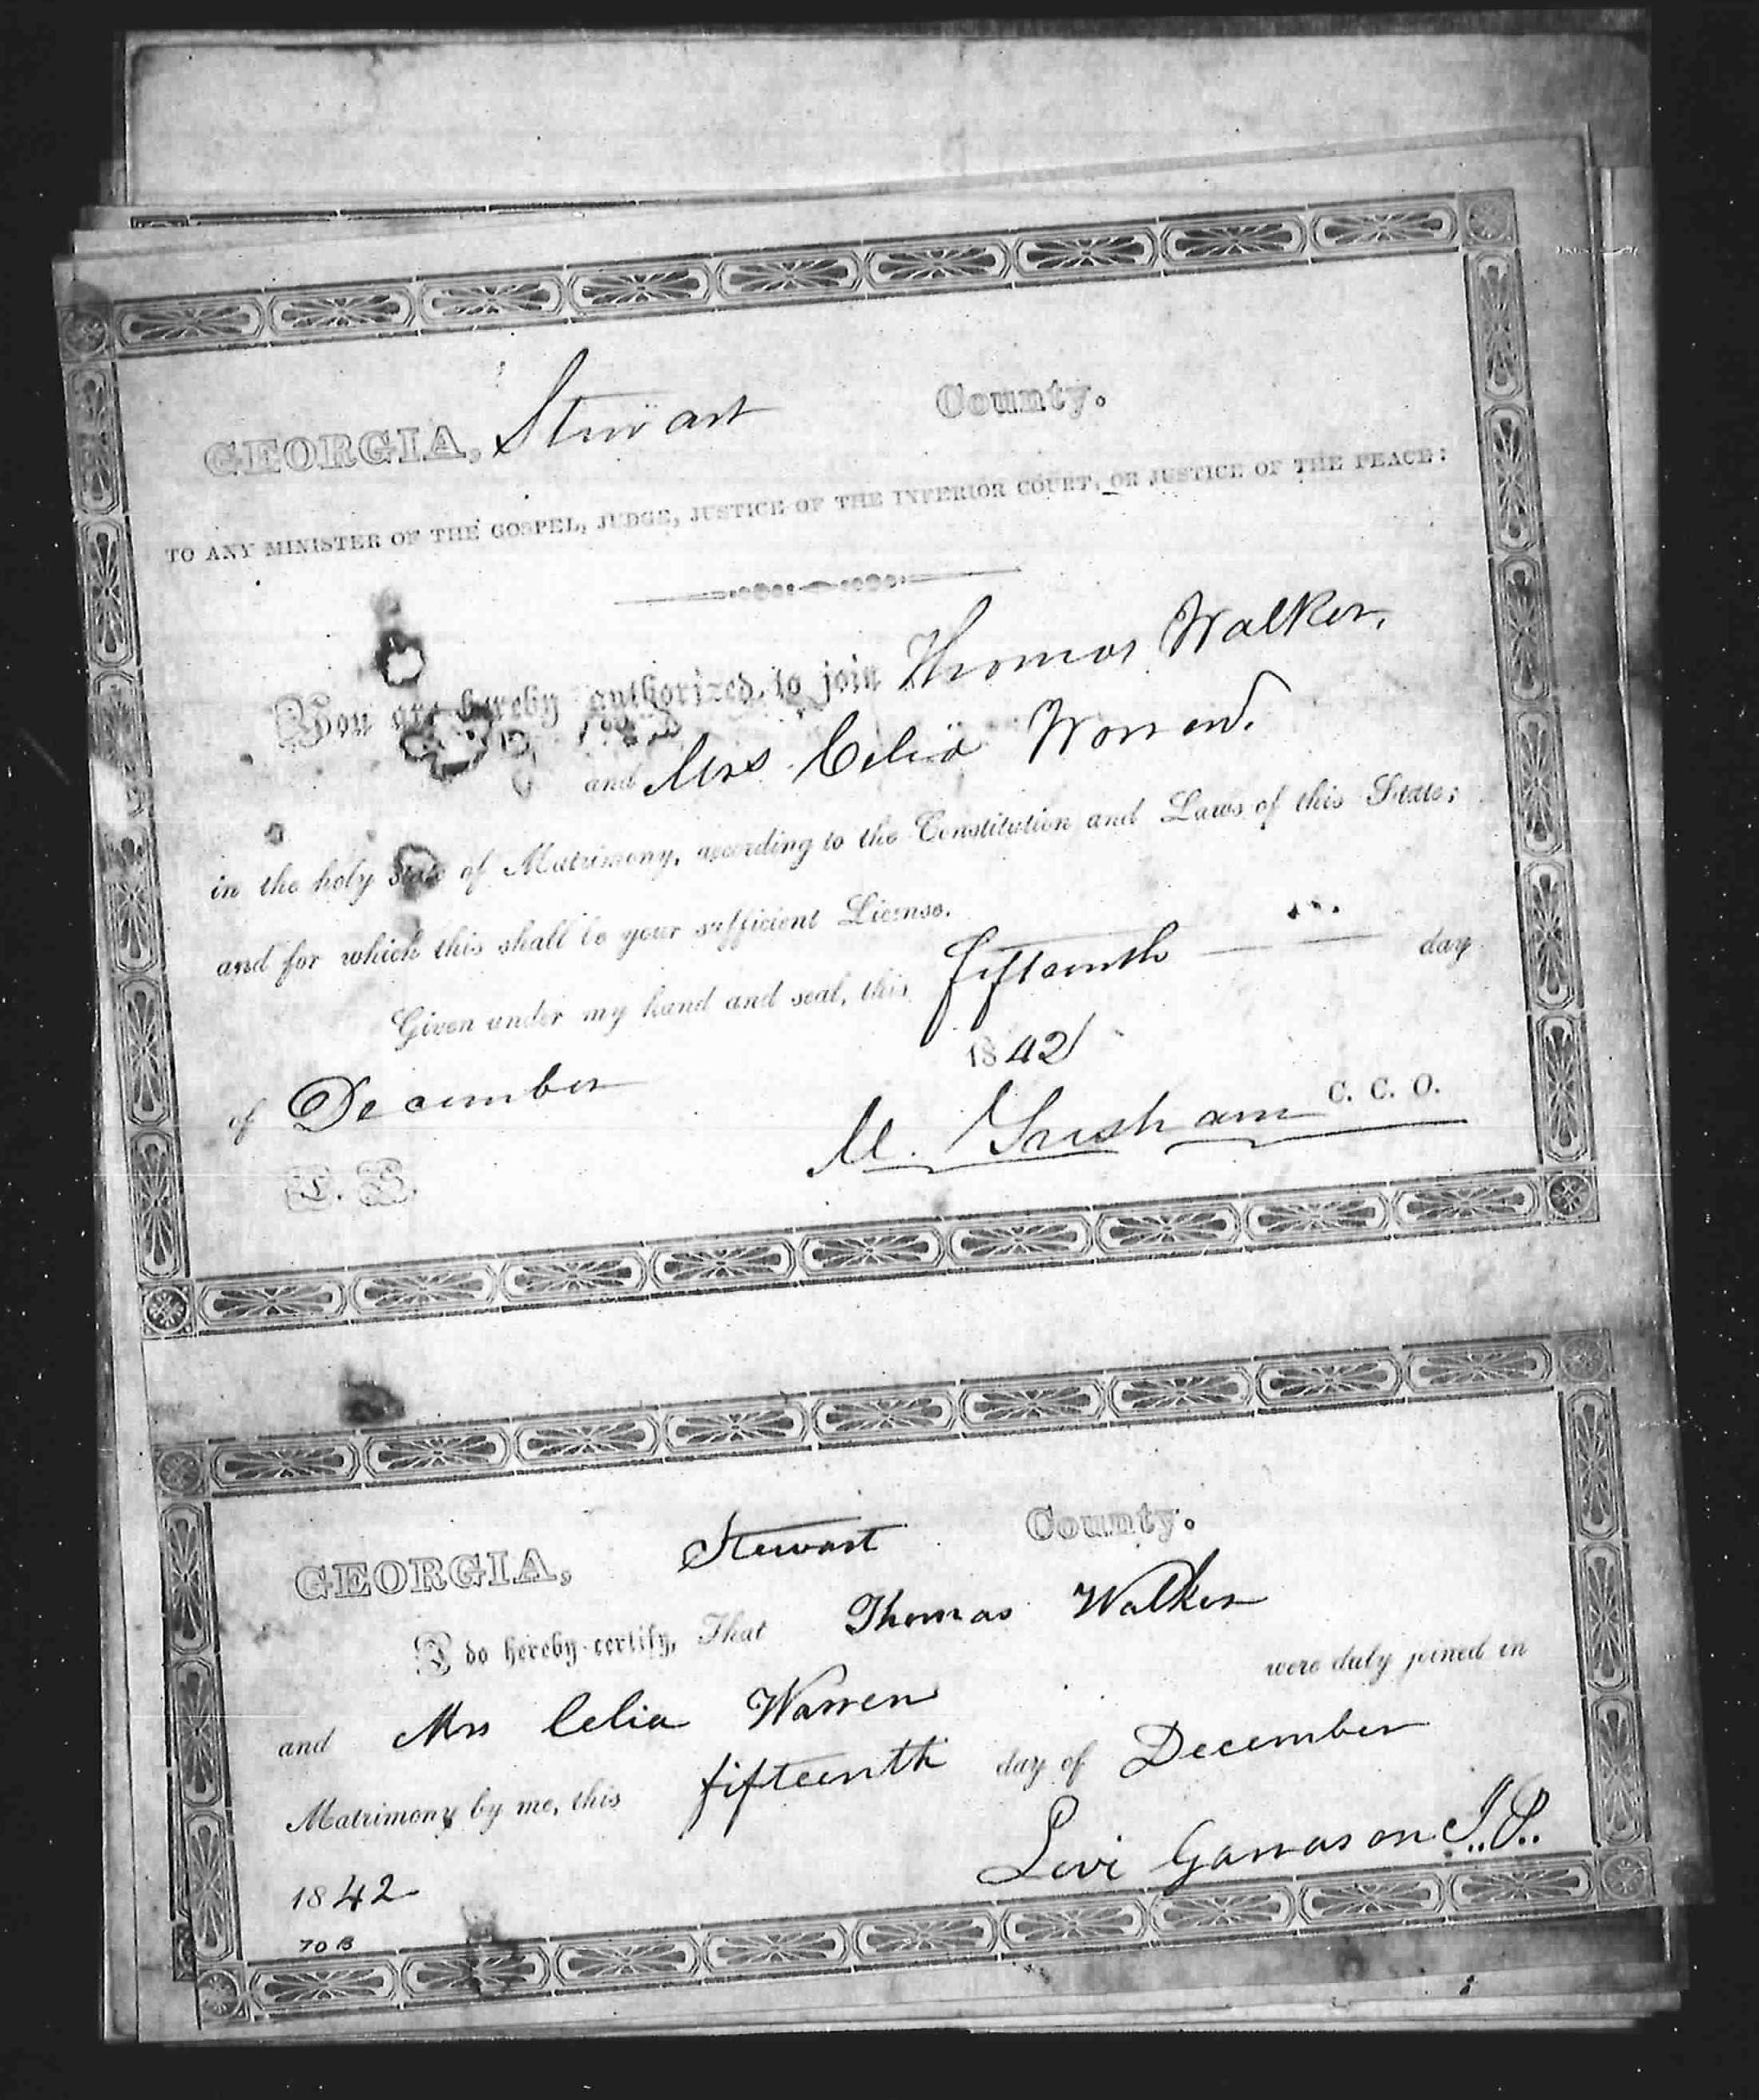 GEORGIA, Stewart County.
TO ANY MINISTER OF THE GOSPEL, JUDGE, JUSTICE OF THE INFERIOR COURT, OR JUSTICE OF THE PEACE:
You are hereby authorized, to join Thomas Walker,
and Mrs Celia Warren.
in the holy state of Matrimony, according to the Constitution and Laws of this State;
and for which this shall be your sufficient License.
Given under my hand and seal, this fifteenth day
of December 1842
M. Gresham C. C. O.
L. S.
GEORGIA, Stewart County.
I do hereby certify, That Thomas Walker
and Mrs Celia Warren were duly joined in
Matrimony by me, this fifteenth day of December
1842 Levi J.P.
70 B